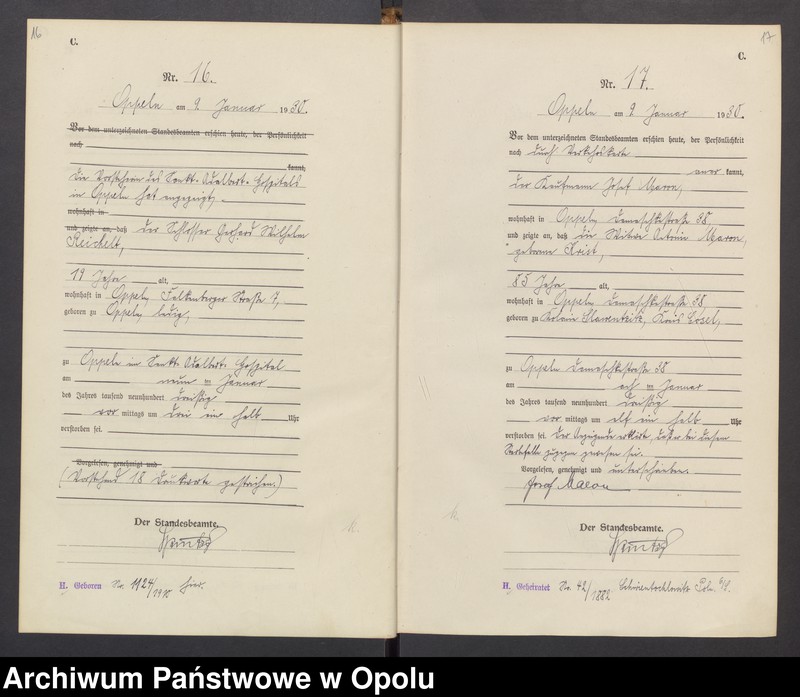 16
C.
Nr. 16.
Oppeln am 9 Januar 1930.
Vor dem unterzeichneten Standesbeamten erschien heute, der Persönlichkeit
nach
kannt,
Die Vorsteherin des Sankt. Adalbert. Hospitals
in Oppeln hat angezeigt,
wohnhaft in
und zeigte an, daß der Schlosser Gerhard Wilhelm
Reichelt,
19 Jahre alt,
wohnhaft in Oppeln, Falkenberger Straße 7,
geboren zu Oppeln, ledig,
zu Oppeln im Sankt. Adalbert. Hospital
am neun ten Januar
des Jahres tausend neunhundert dreißig
vor mittags um drei ein halb Uhr
verstorben sei.
Vorgelesen, genehmigt und
(Vorstehend 18 Druckworte gestrichen.)
Der Standesbeamte.
H. Geboren Nr. 1124/1910 hier.
17
C.
Nr. 17.
Oppeln am 9 Januar 1930.
Vor dem unterzeichneten Standesbeamten erschien heute, der Persönlichkeit
nach durch Verkehrskarte
aner kannt,
der Kaufmann Josef Maron,
wohnhaft in Oppeln, 38
und zeigte an, daß die Witwe Maron,
geborene
85 Jahre alt,
wohnhaft in Oppeln, 38
geboren zu Kolonie Klawentzitz, Kreis Cosel,
zu Oppeln 38
am ach ten Januar
des Jahres tausend neunhundert dreißig
vor mittags um elf ein halb Uhr
verstorben sei. Der Anzeigende erklärte, daß er bei diesem
Sterbefalle zugegen gewesen sei.
Vorgelesen, genehmigt und unterschrieben.
Josef Maron
Der Standesbeamte.
H. Geheiratet Nr. 42/1882
Archiwum Państwowe w Opolu